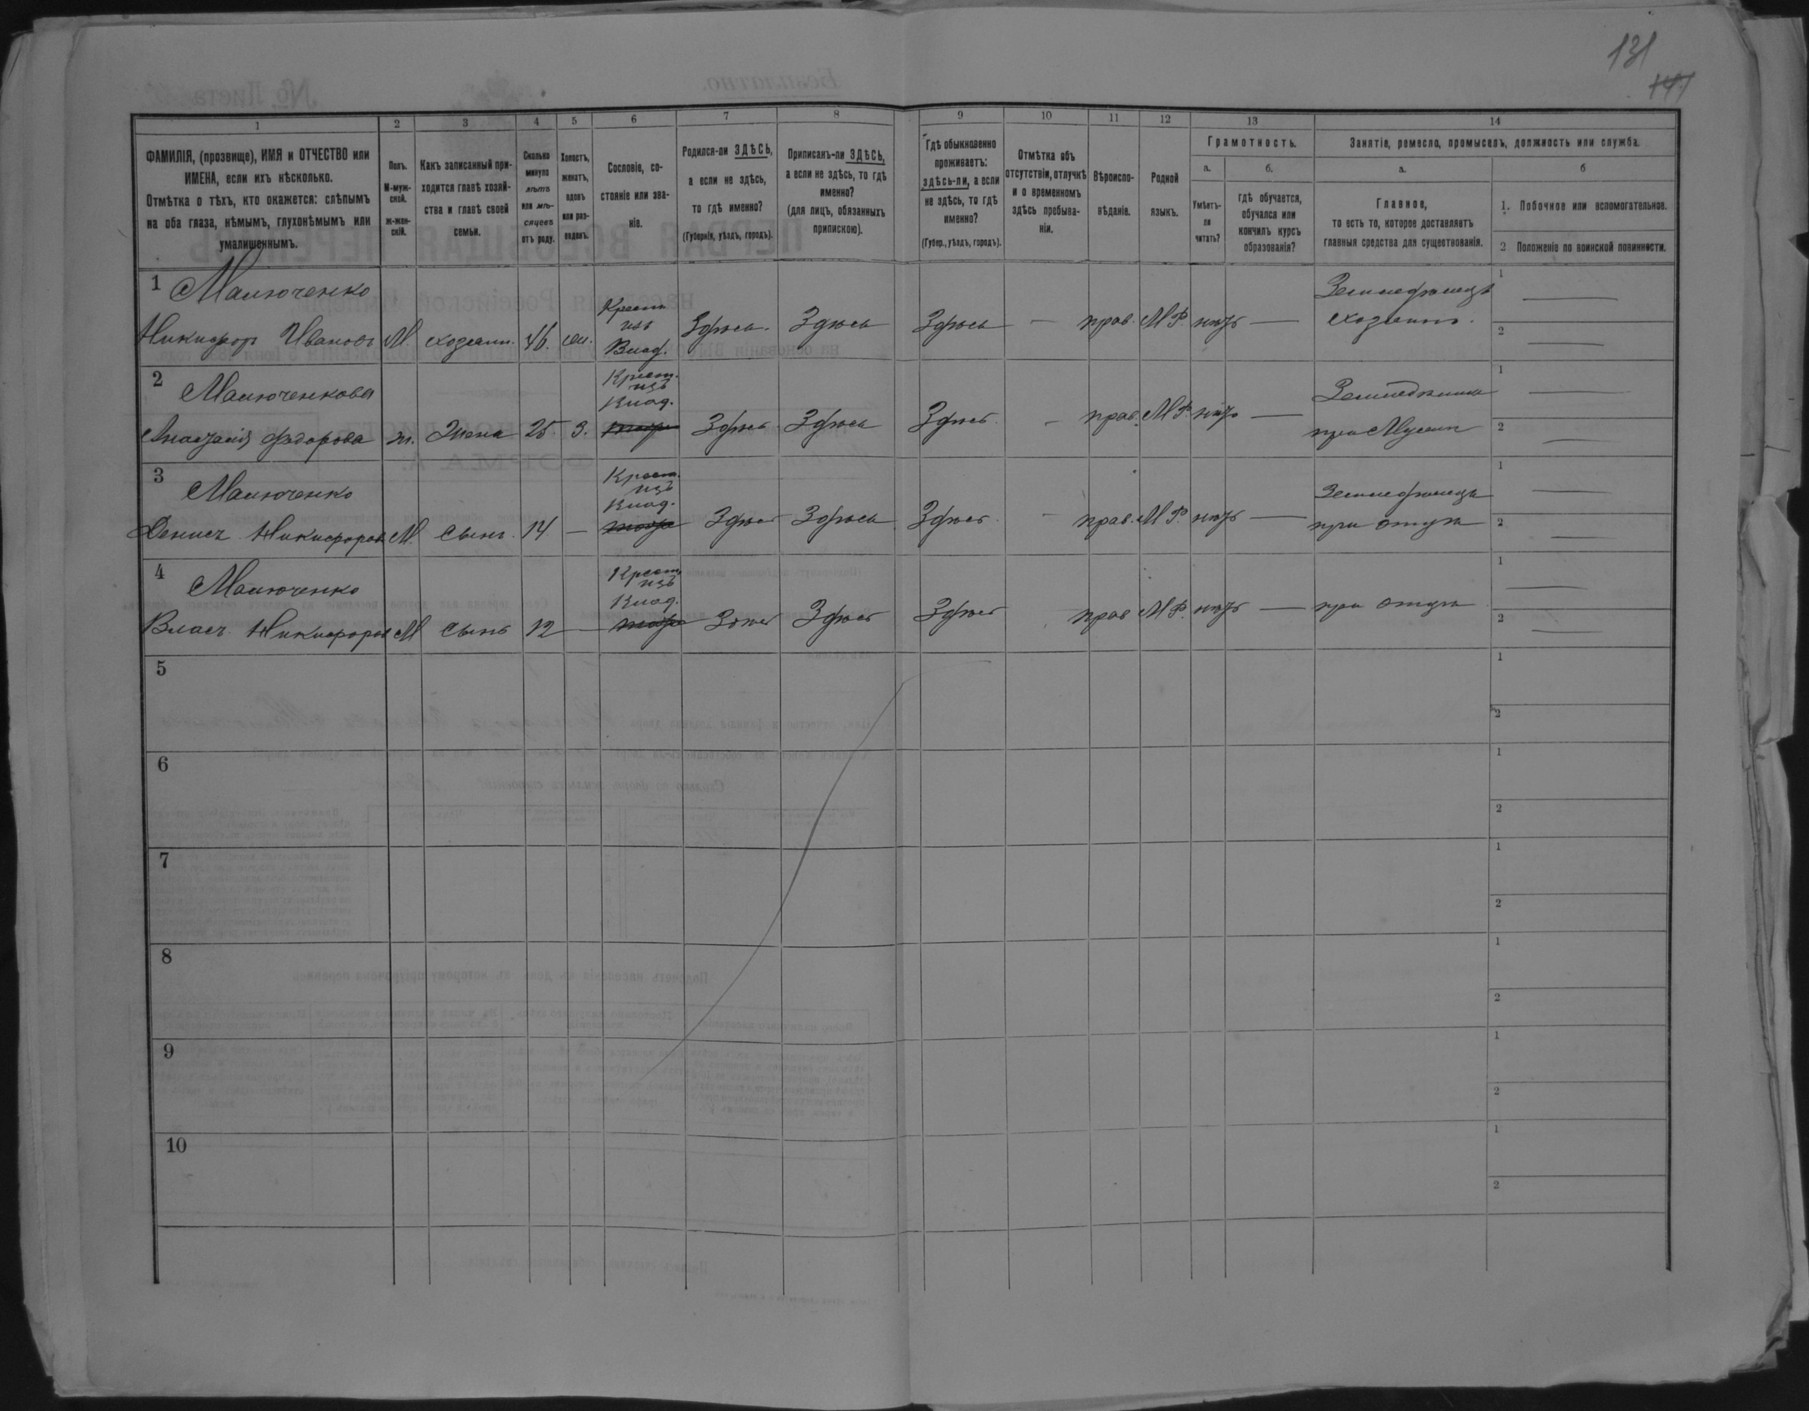 131
141
1 2 3 4 5 6 7 8 9 10 11 12 13 14
ФАМИЛІЯ, (прозвище), ИМЯ и ОТЧЕСТВО или ИМЕНА, если ихъ нѣсколько.
Отмѣтка о тѣхъ, кто окажется: слѣпымъ на оба глаза, нѣмымъ, глухонѣмымъ или умалишеннымъ.
Полъ.
М-мужской.
ж-женскій.
Какъ записанный приходится главѣ хозяйства и главѣ своей семьи.
Сколько минуло лѣтъ или мѣсяцевъ отъ роду.
Холостъ, женатъ, вдовъ или разведенъ.
Сословіе, состояніе или званіе.
Родился-ли ЗДѢСЬ, а если не здѣсь, то гдѣ именно?
(Губернія, уѣздъ, городъ).
Приписанъ-ли ЗДѢСЬ, а если не здѣсь, то гдѣ именно?
(для лицъ, обязанныхъ припискою).
Гдѣ обыкновенно проживаетъ: здѣсь-ли, а если не здѣсь, то гдѣ именно?
(Губер., уѣздъ, городъ).
Отмѣтка объ отсутствіи, отлучкѣ и о временномъ здѣсь пребываніи.
Вѣроисповѣданіе.
Родной языкъ.
Грамотность.
а.
Умѣетъ-ли читать?
б.
гдѣ обучается, обучался или кончилъ курсъ образованія?
Занятіе, ремесло, промыселъ, должность или служба.
а.
Главное,
то есть то, которое доставляетъ главныя средства для существованія.
б
1. Побочное или вспомогательное.
2 Положеніе по воинской повинности.
1 Малюченко
Никифоръ Ивановъ М. хозяинъ. 46. Крест. изъ Влад. Здѣсь. Здѣсь Здѣсь — прав. М Р. нѣтъ — Земледѣлецъ хозяинъ.
1 —
2 —
2 Малюченкова
Анастасія Федорова ж. Жена 25 З. Крест. изъ Влад. Здѣсь Здѣсь Здѣсь - прав. М Р. нѣтъ — при Мужѣ
1 —
2 —
3 Малюченко
Денисъ Никифоровъ М. Сынъ. 14 — Крест. изъ Влад. Здѣсь Здѣсь Здѣсь - прав. М Р. нѣтъ — Земледѣлецъ при отцѣ
1 —
2 —
4 Малюченко
Власъ Никифоровъ М Сынъ 12 — Крест. изъ Влад. Здѣсь Здѣсь Здѣсь прав М Р. нѣтъ — при отцѣ
1 —
2 —
5
1
2
6
1
2
7
1
2
8
1
2
9
1
2
10
1
2